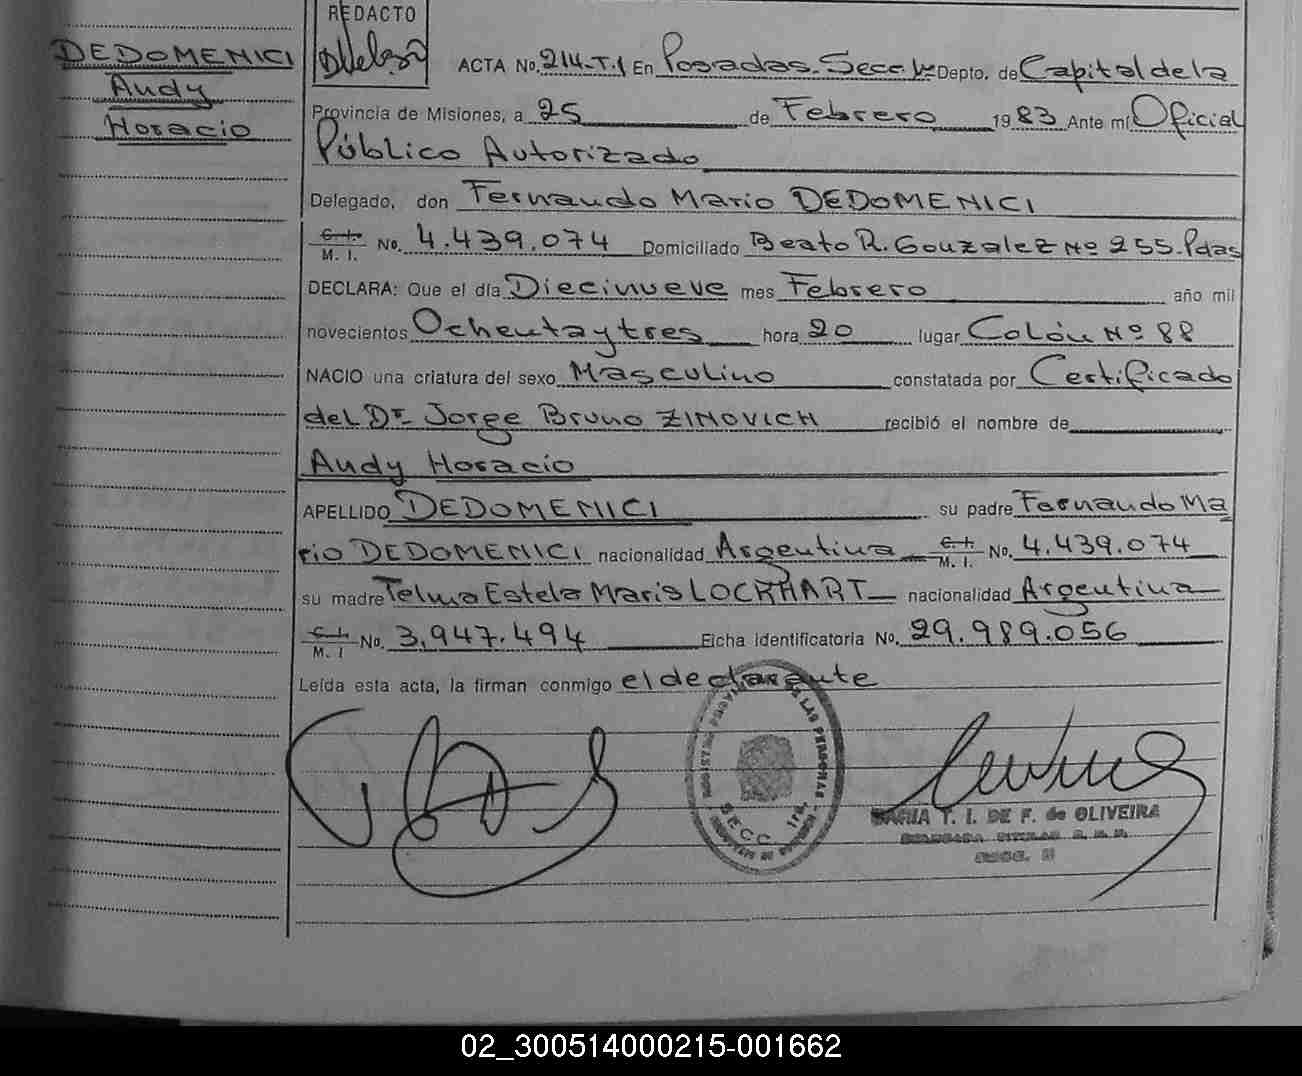 REDACTO
DEDOMENICI
Andy
Horacio
ACTA No. 214-T.1 En Posadas. Secc. 1ra Depto. de Capital de la
Provincia de Misiones, a 25 de Febrero 1983 Ante mí Oficial
Público Autorizado
Delegado, don Fernando Mario DEDOMENICI
C. I. M. I. No. 4.439.074 Domiciliado Beato R. Gonzalez Nº 255. Pdas
DECLARA: Que el día Diecinueve mes Febrero año mil
novecientos Ochentaytres hora 20 lugar Colón Nº 88
NACIO una criatura del sexo Masculino constatada por Certificado
del Dr. Jorge Bruno ZINOVICH recibió el nombre de
Andy Horacio
APELLIDO DEDOMENICI su padre Fernando Ma
rio DEDOMENICI nacionalidad Argentina C. I. M. I. No. 4.439.074
su madre Telma Estela Maris LOCKHART nacionalidad Argentina
C. I. M. I No. 3.947.494 Ficha Identificatoria No. 29.989.056
Leída esta acta, la firman conmigo el declarante
DE LAS PERSONAS
SECC. 1ra.
T. I. DE F. de OLIVEIRA
02_300514000215-001662